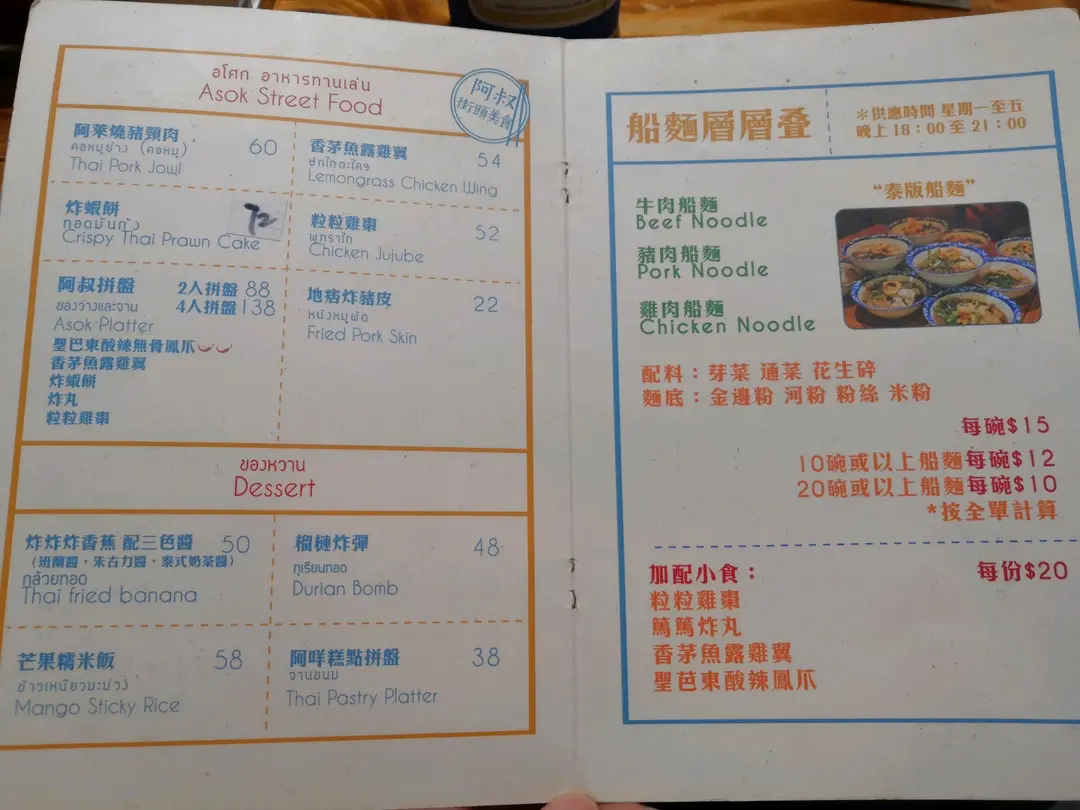 อโศก อาหารทานเล่น
Asok Street Food
阿叔
街頭美食
阿萊燒豬頸肉
คอหมูย่าง (คอหมู)
60
Thai Pork Jowl
香茅魚露雞翼
54
Lemongrass Chicken Wing
炸蝦餅
72
ทอดมันกุ้ง
Crispy Thai Prawn Cake
粒粒雞棗
52
Chicken Jujube
阿叔拼盤 2人拼盤 88
ของว่างและจาน 4人拼盤 138
Asok Platter
聖巴東酸辣無骨鳳爪
香茅魚露雞翼
炸蝦餅
炸丸
粒粒雞棗
地痞炸豬皮
22
Fried Pork Skin
ของหวาน
Dessert
炸炸炸香蕉 配三色醬 50
(班蘭醬・朱古力醬・泰式奶茶醬)
กล้วยทอด
Thai fried banana
榴槤炸彈
48
ทุเรียนทอด
Durian Bomb
芒果糯米飯
58
ข้าวเหนียวมะม่วง
Mango Sticky Rice
阿咩糕點拼盤
38
จานขนม
Thai Pastry Platter
船麵層層叠
*供應時間 星期一至五
晚上 18:00 至 21:00
“泰版船麵”
牛肉船麵
Beef Noodle
豬肉船麵
Pork Noodle
雞肉船麵
Chicken Noodle
配料:芽菜 通菜 花生碎
麵底:金邊粉 河粉 粉絲 米粉
每碗$15
10碗或以上船麵每碗$12
20碗或以上船麵每碗$10
*按全單計算
加配小食: 每份$20
粒粒雞棗
篤篤炸丸
香茅魚露雞翼
聖芭東酸辣鳳爪